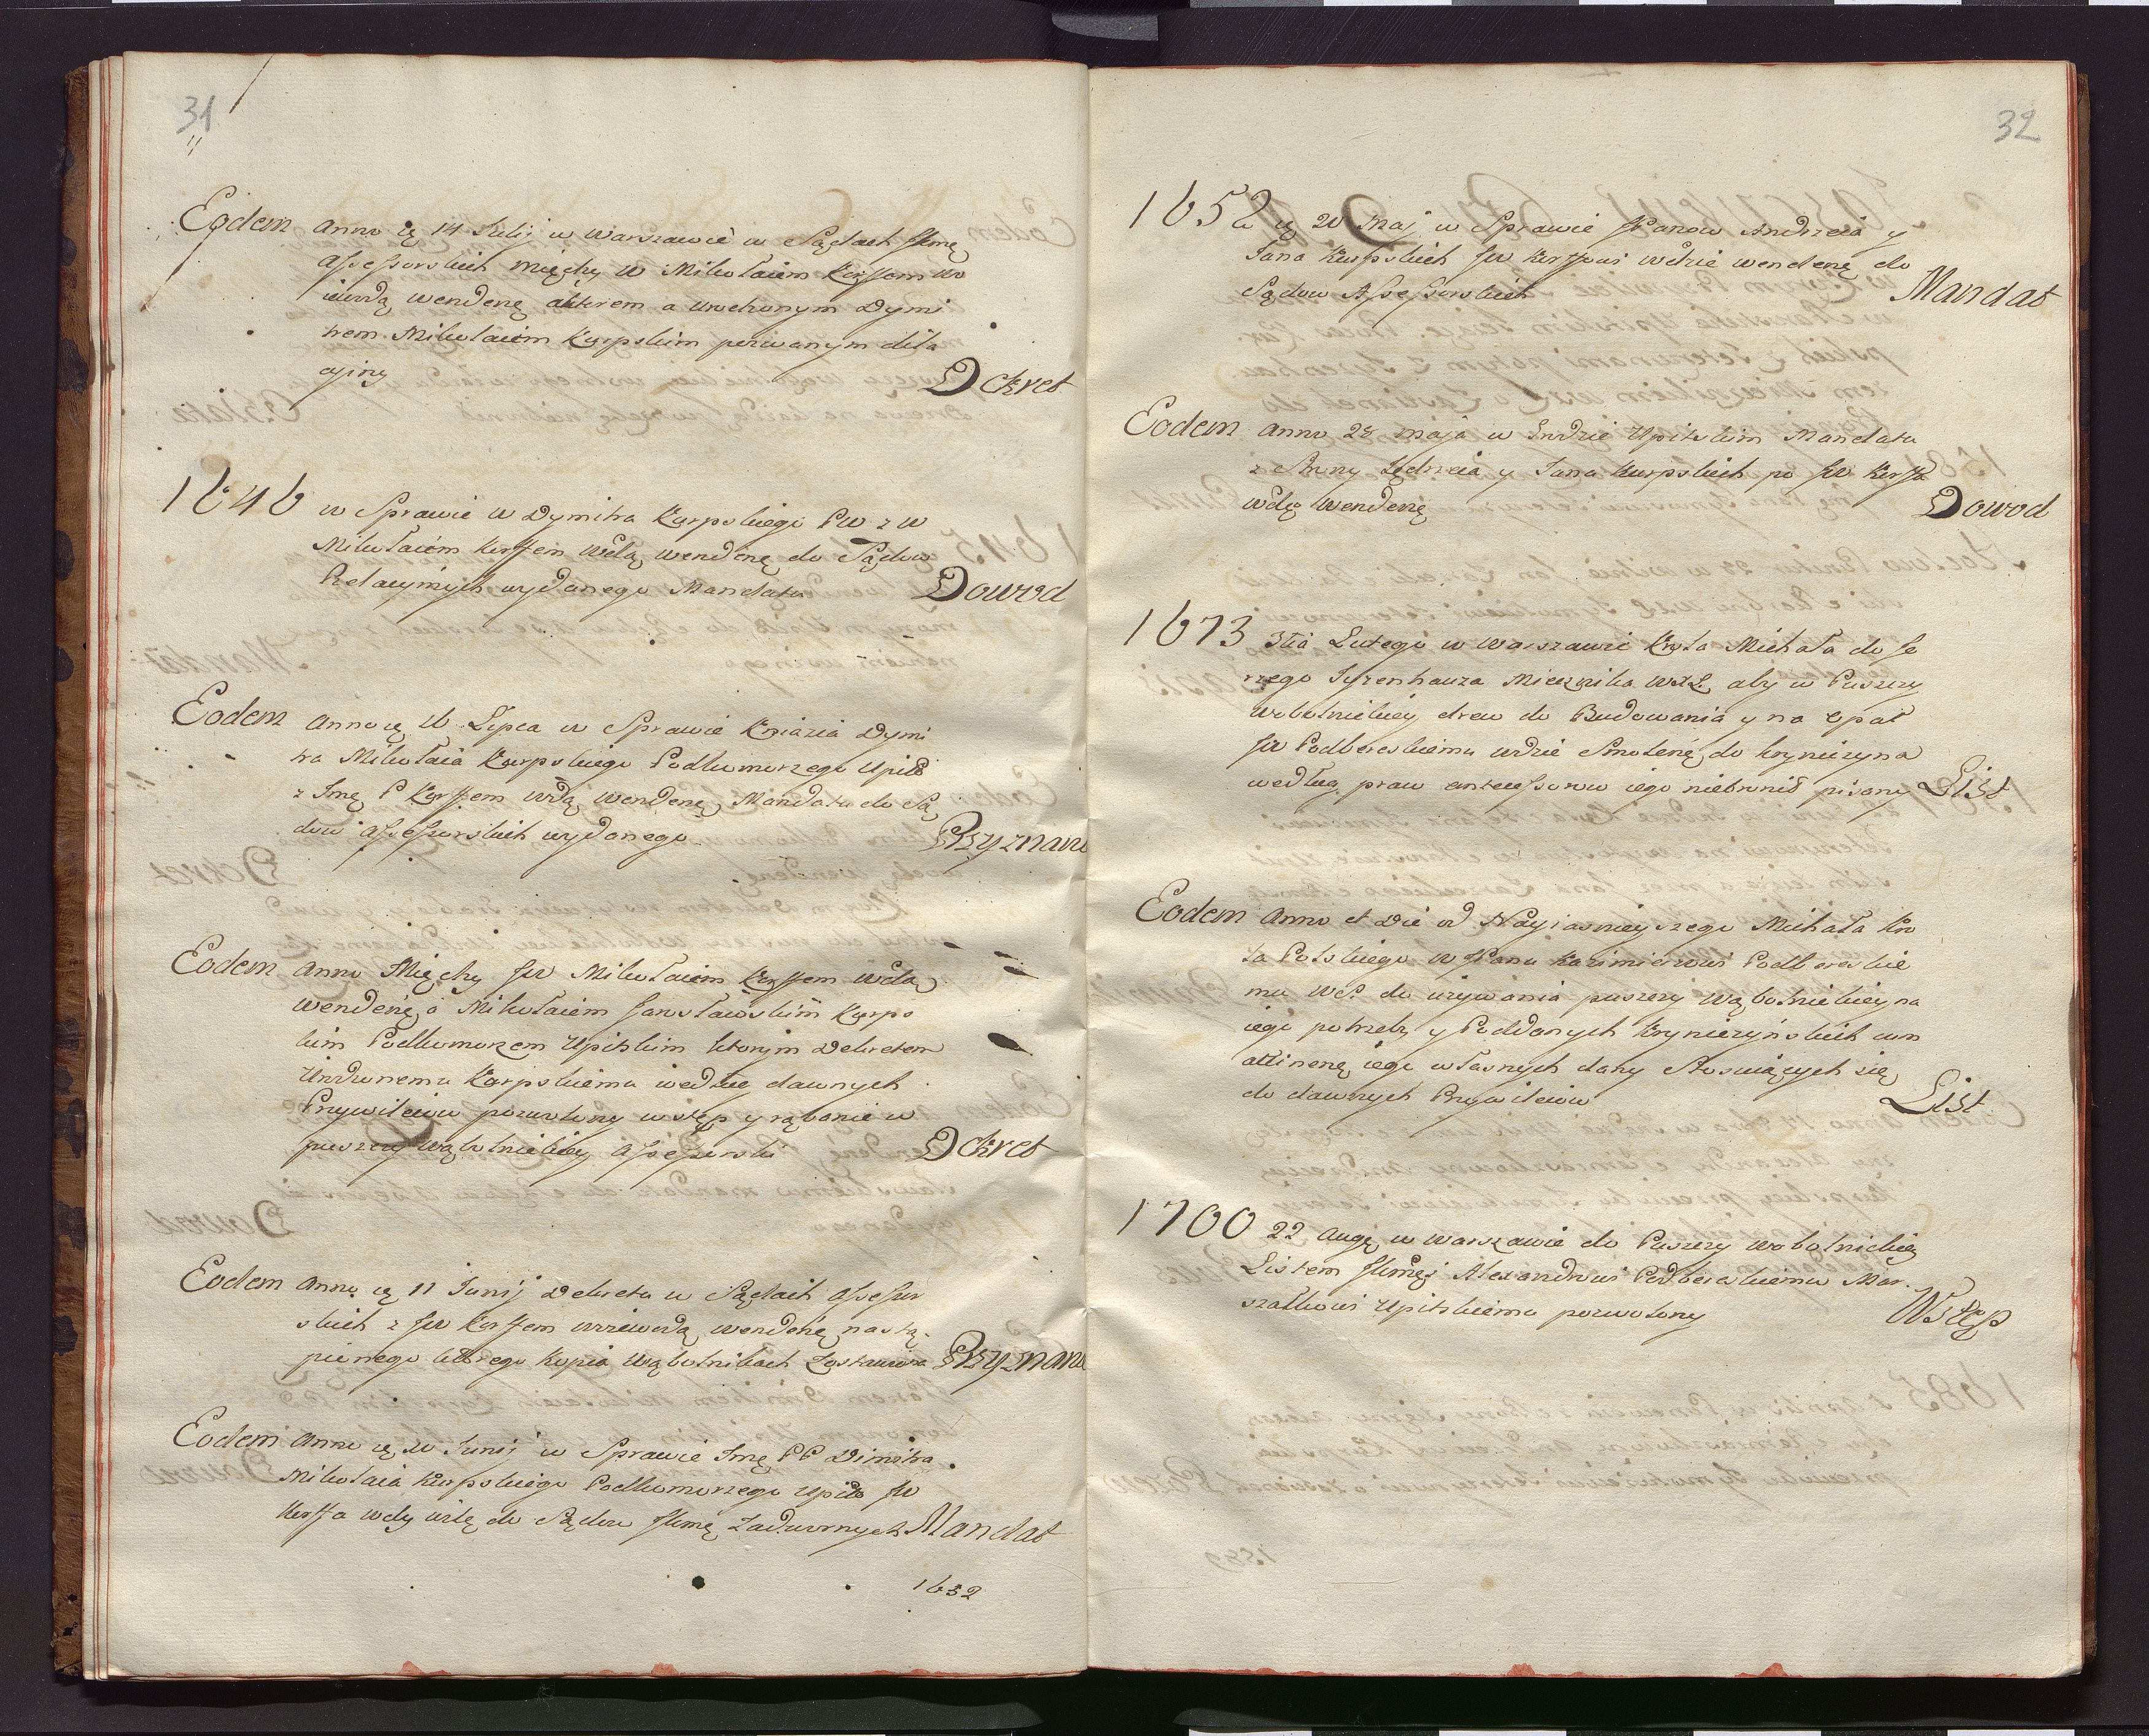 31
Eodem anno ꝗ 14 Julij w Warszawie w Sądach JKmę
assessorskich między W Mikołaiem Korffem wo
iewodą wendenę aktorem a urodzonym Dymi
trem Mikołaiem Karpskim pozwanym dila
cyiny Dekret
1646 w Sprawie W Dymitra Karpskiego PW z W
Mikołaiem Korffem Wdą wendenę do Sądow
Relacyinych wydanego Mandatu Dowod
Eodem anno ꝗ 16 Lipca w Sprawie Kniazia Dymi
tra Mikołaia Karpskiego Podkomorzego Upitt
z Jmę P Korffem wdą wendenę Mandatu do Są
dow assessorskich wydanego Przyznanie
Eodem anno Między JW Mikołaiem Korffem wdą
wendenę a Mikołaiem Jarosławskim Karps
kim Podkomorzem Upitskim ktorym Dekretem
Urodzonemu Karpskiemu według dawnych
Przywileiow pozwolony wstęp y rąbanie w
puszczy Wąbolnickiey assessorski Dekret
Eodem anno ꝗ 11 Junij Dekretu w Sądach assessor
skich z JW Korffem woiewodą wendenę nastą
pionego ktorego Kopia Wąbolnikach zostawiona Przyznanie
Eodem anno ꝗ 20 Junij w Sprawie Jmę PP Dimitra
Mikołaia Karpskiego Podkomorzego Upitt JW
Korffa wdy do Sądow JKmę Zadwornych Mandat
1652
32
1652 ꝗ 20 Maj w Sprawie JPanow Andrzeia y
Jana Karpskich JW Korffowi wdzie wendenę do
Sądow Assessorskich Mandat
Eodem anno 28 Maja w Grodzie Upitskim Mandatu
z strony Jędrzeia y Jana Karpskich po JW Korffa
wdę wendenę Dowod
1673 3tia Lutego w Warszawie Krola Michała do Je
rzego Tyzenhauza Miecznika WXL aby w Puszczy
wobolnickiey drew do Budowania y na opał
JW Podbereskiemu wdzie Smolenę do Kryniczyna
według praw antecessorow iego niebronił pisany List
Eodem anno et Die od Nayiasnieyszego Michała Kro
la Polskiego W JPanu Kazimierzowi Podbereskie
mu WS do używania puszczy Wąbolnickiey na
iego potrzeb y Poddanych Kryniczyńskich cum
attinenę iego własnych dany stosuiących się
do dawnych Przywileiow List
1700 22 Augę w Warszawie do Puszczy wobolnickiey
Listem JKmęj Alexandrowi Podbereskiemu Mar
szałkowi Upitskiemu pozwolony Wstęp